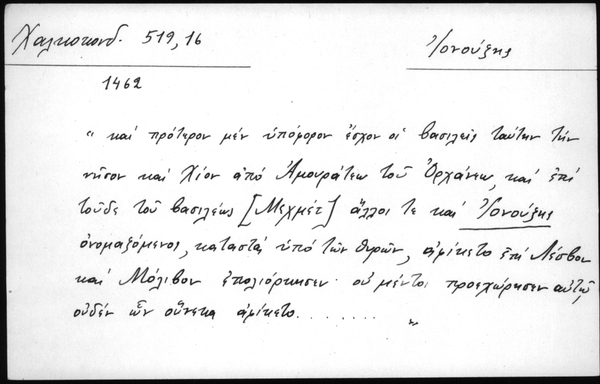 Χαλκοκονδ. 519,16
Ἰονούζης
1462
" καὶ πρότερον μέν ὑπόφορον ἔσχον οἱ βασιλεῖς ταύτην τήν
νῆσον καὶ Χίον ἀπό Ἀμουράτεω τοῦ Ὀρχάνεω, καὶ ἐπί
τοῦδε τοῦ βασιλέως [Μεχμέτ] ἄλλοι τε καὶ Ἰονούζης
ὀνομαζόμενος, καταστάς ὑπό τῶν θυρῶν, ἀφίκετο ἐπί Λέσβον
καὶ Μόλιβον ἐπολιόρκησεν· οὐ μέντοι προεχώρησεν αὐτῷ
οὐδέν ὧν οὕνεκα ἀφίκετο........ "